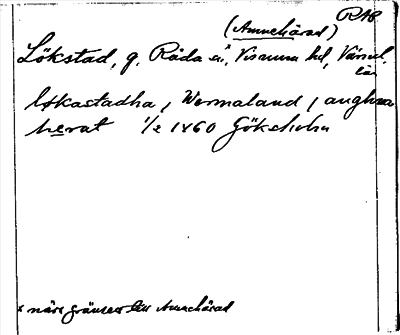 R18
(Amnehärad)
Lökstad, g. Råda sn,ˣ Visnum hd, Värml.
län
Løkastadha, Wermaland, aughna
herat 1/2 1460 Göksholm
x nära gränsen till Amnehärad